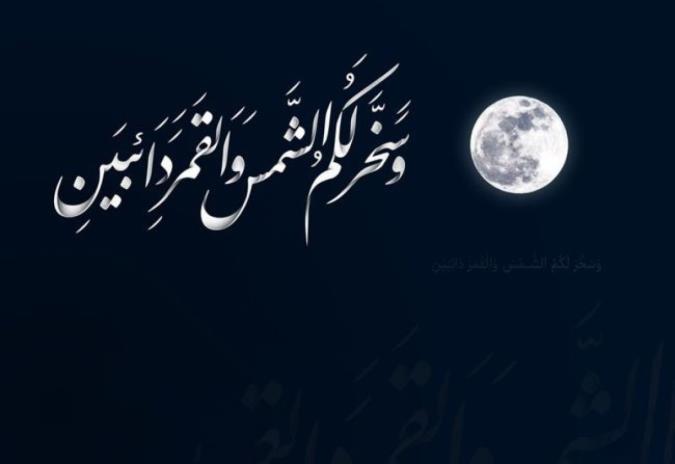 وَسَخَّرَ لَكُمُ الشَّمْسَ وَالْقَمَرَ دَائِبَيْنِ
وَسَخَّرَ لَكُمُ الشَّمْسَ وَالْقَمَرَ دَائِبَيْنِ
الشَّمس وَالقَمَرَ